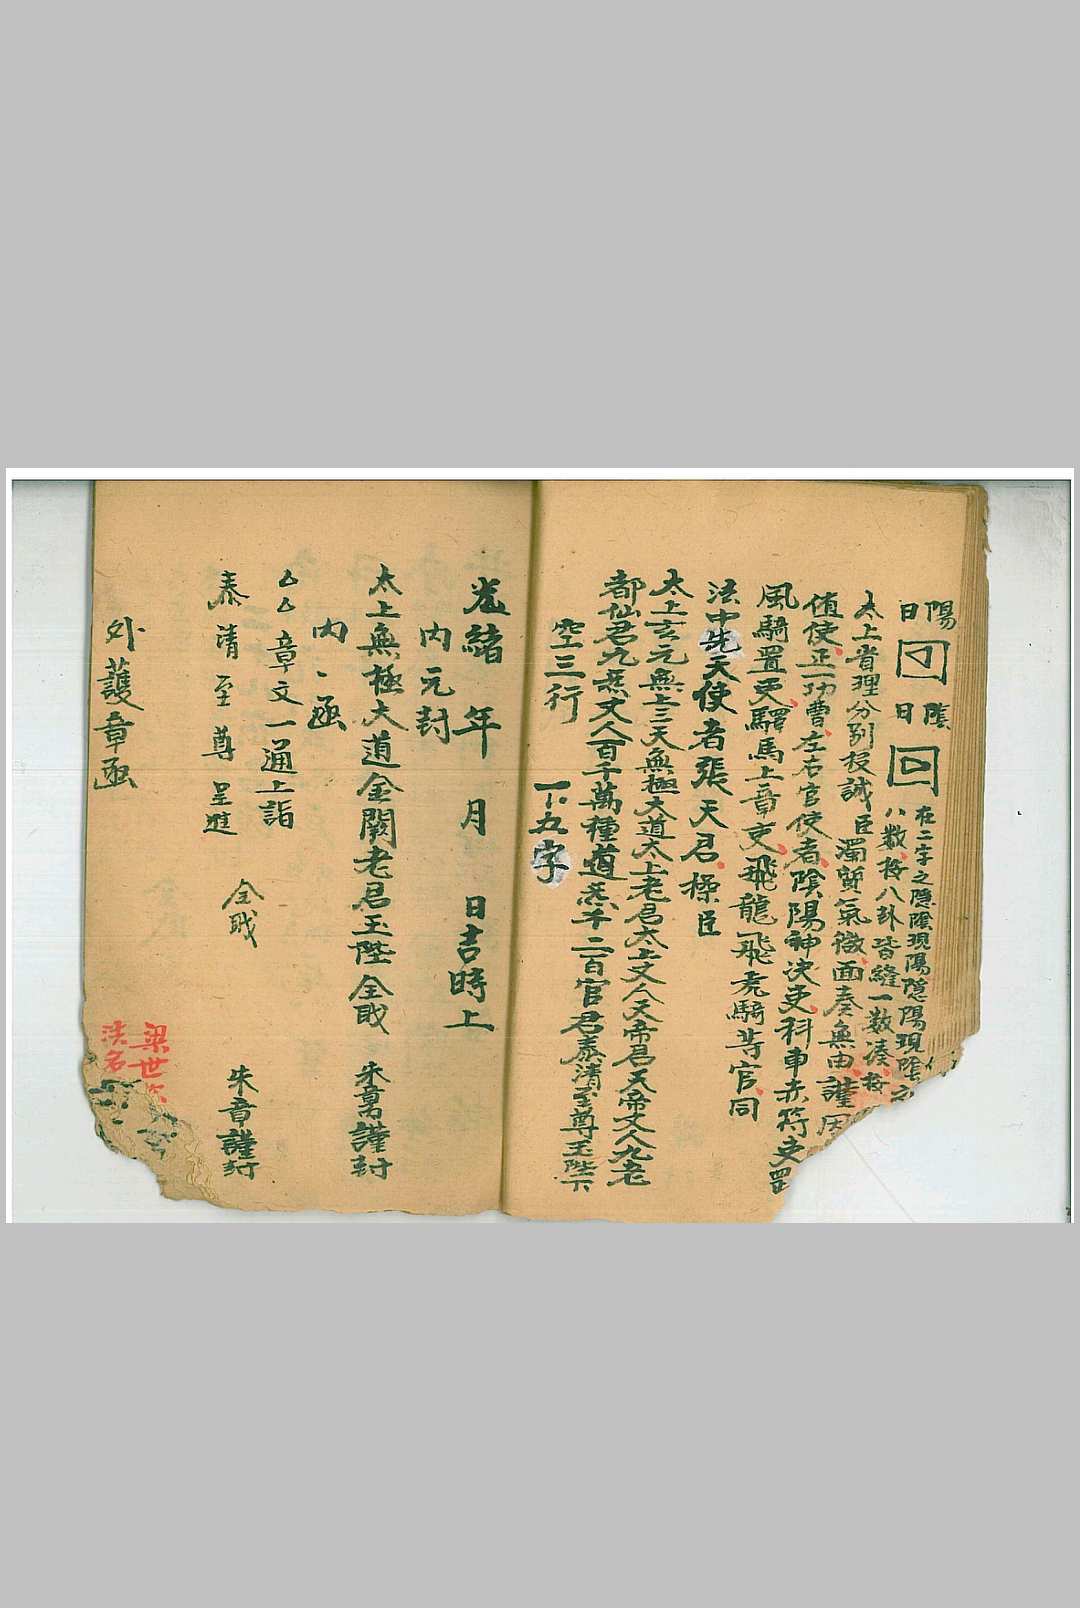 陽日
陰日
在二字之隱陰現陽隱陽現陰
八數按八卦皆縫一數湊按
太上省理分別投誠臣濁質氣微面奏無由謹因
侑使正一功曹左右官使者陰陽神決吏科車赤符吏罡
風騎置吏驛馬上章吏飛龍飛虎騎等官同
法中先天使者張天君操臣
太上玄元無上三天無極大道太上老君太上丈人天帝君天帝丈人九老
都仙君九炁丈人百千萬種道炁千二百官君泰清至尊玉陛下
空三行
一下五字
光緒 年 月 日吉時上
內元封
太上無極大道金闕老君玉陛 全戝 朱篆謹封
內函
厶厶章文一通上詣
泰清至尊呈進 全戝 朱章謹封
外護章函
梁世
法名